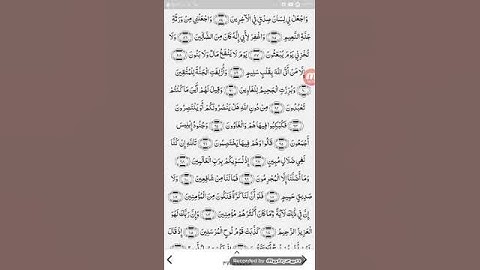 وَاجْعَلْ لِي لِسَانَ صِدْقٍ فِي الْآخِرِينَ ﴿٨٤﴾ وَاجْعَلْنِي مِنْ وَرَثَةِ
جَنَّةِ النَّعِيمِ ﴿٨٥﴾ وَاغْفِرْ لِأَبِي إِنَّهُ كَانَ مِنَ الضَّالِّينَ ﴿٨٦﴾ وَلَا
تُخْزِنِي يَوْمَ يُبْعَثُونَ ﴿٨٧﴾ يَوْمَ لَا يَنْفَعُ مَالٌ وَلَا بَنُونَ ﴿٨٨﴾
إِلَّا مَنْ أَتَى اللَّهَ بِقَلْبٍ سَلِيمٍ ﴿٨٩﴾ وَأُزْلِفَتِ الْجَنَّةُ لِلْمُتَّقِينَ
﴿٩٠﴾ وَبُرِّزَتِ الْجَحِيمُ لِلْغَاوِينَ ﴿٩١﴾ وَقِيلَ لَهُمْ أَيْنَ مَا كُنْتُمْ
تَعْبُدُونَ ﴿٩٢﴾ مِنْ دُونِ اللَّهِ هَلْ يَنْصُرُونَكُمْ أَوْ يَنْتَصِرُونَ
﴿٩٣﴾ فَكُبْكِبُوا فِيهَا هُمْ وَالْغَاوُونَ ﴿٩٤﴾ وَجُنُودُ إِبْلِيسَ
أَجْمَعُونَ ﴿٩٥﴾ قَالُوا وَهُمْ فِيهَا يَخْتَصِمُونَ ﴿٩٦﴾ تَاللَّهِ إِنْ كُنَّا
لَفِي ضَلَالٍ مُبِينٍ ﴿٩٧﴾ إِذْ نُسَوِّيكُمْ بِرَبِّ الْعَالَمِينَ ﴿٩٨﴾
وَمَا أَضَلَّنَا إِلَّا الْمُجْرِمُونَ ﴿٩٩﴾ فَمَا لَنَا مِنْ شَافِعِينَ ﴿١٠٠﴾ وَلَا
صَدِيقٍ حَمِيمٍ ﴿١٠١﴾ فَلَوْ أَنَّ لَنَا كَرَّةً فَنَكُونَ مِنَ الْمُؤْمِنِينَ ﴿١٠٢﴾
إِنَّ فِي ذَلِكَ لَآيَةً وَمَا كَانَ أَكْثَرُهُمْ مُؤْمِنِينَ ﴿١٠٣﴾ وَإِنَّ رَبَّكَ لَهُوَ
الْعَزِيزُ الرَّحِيمُ ﴿١٠٤﴾ كَذَّبَتْ قَوْمُ نُوحٍ الْمُرْسَلِينَ ﴿١٠٥﴾ إِذْ قَالَ
Recorded by